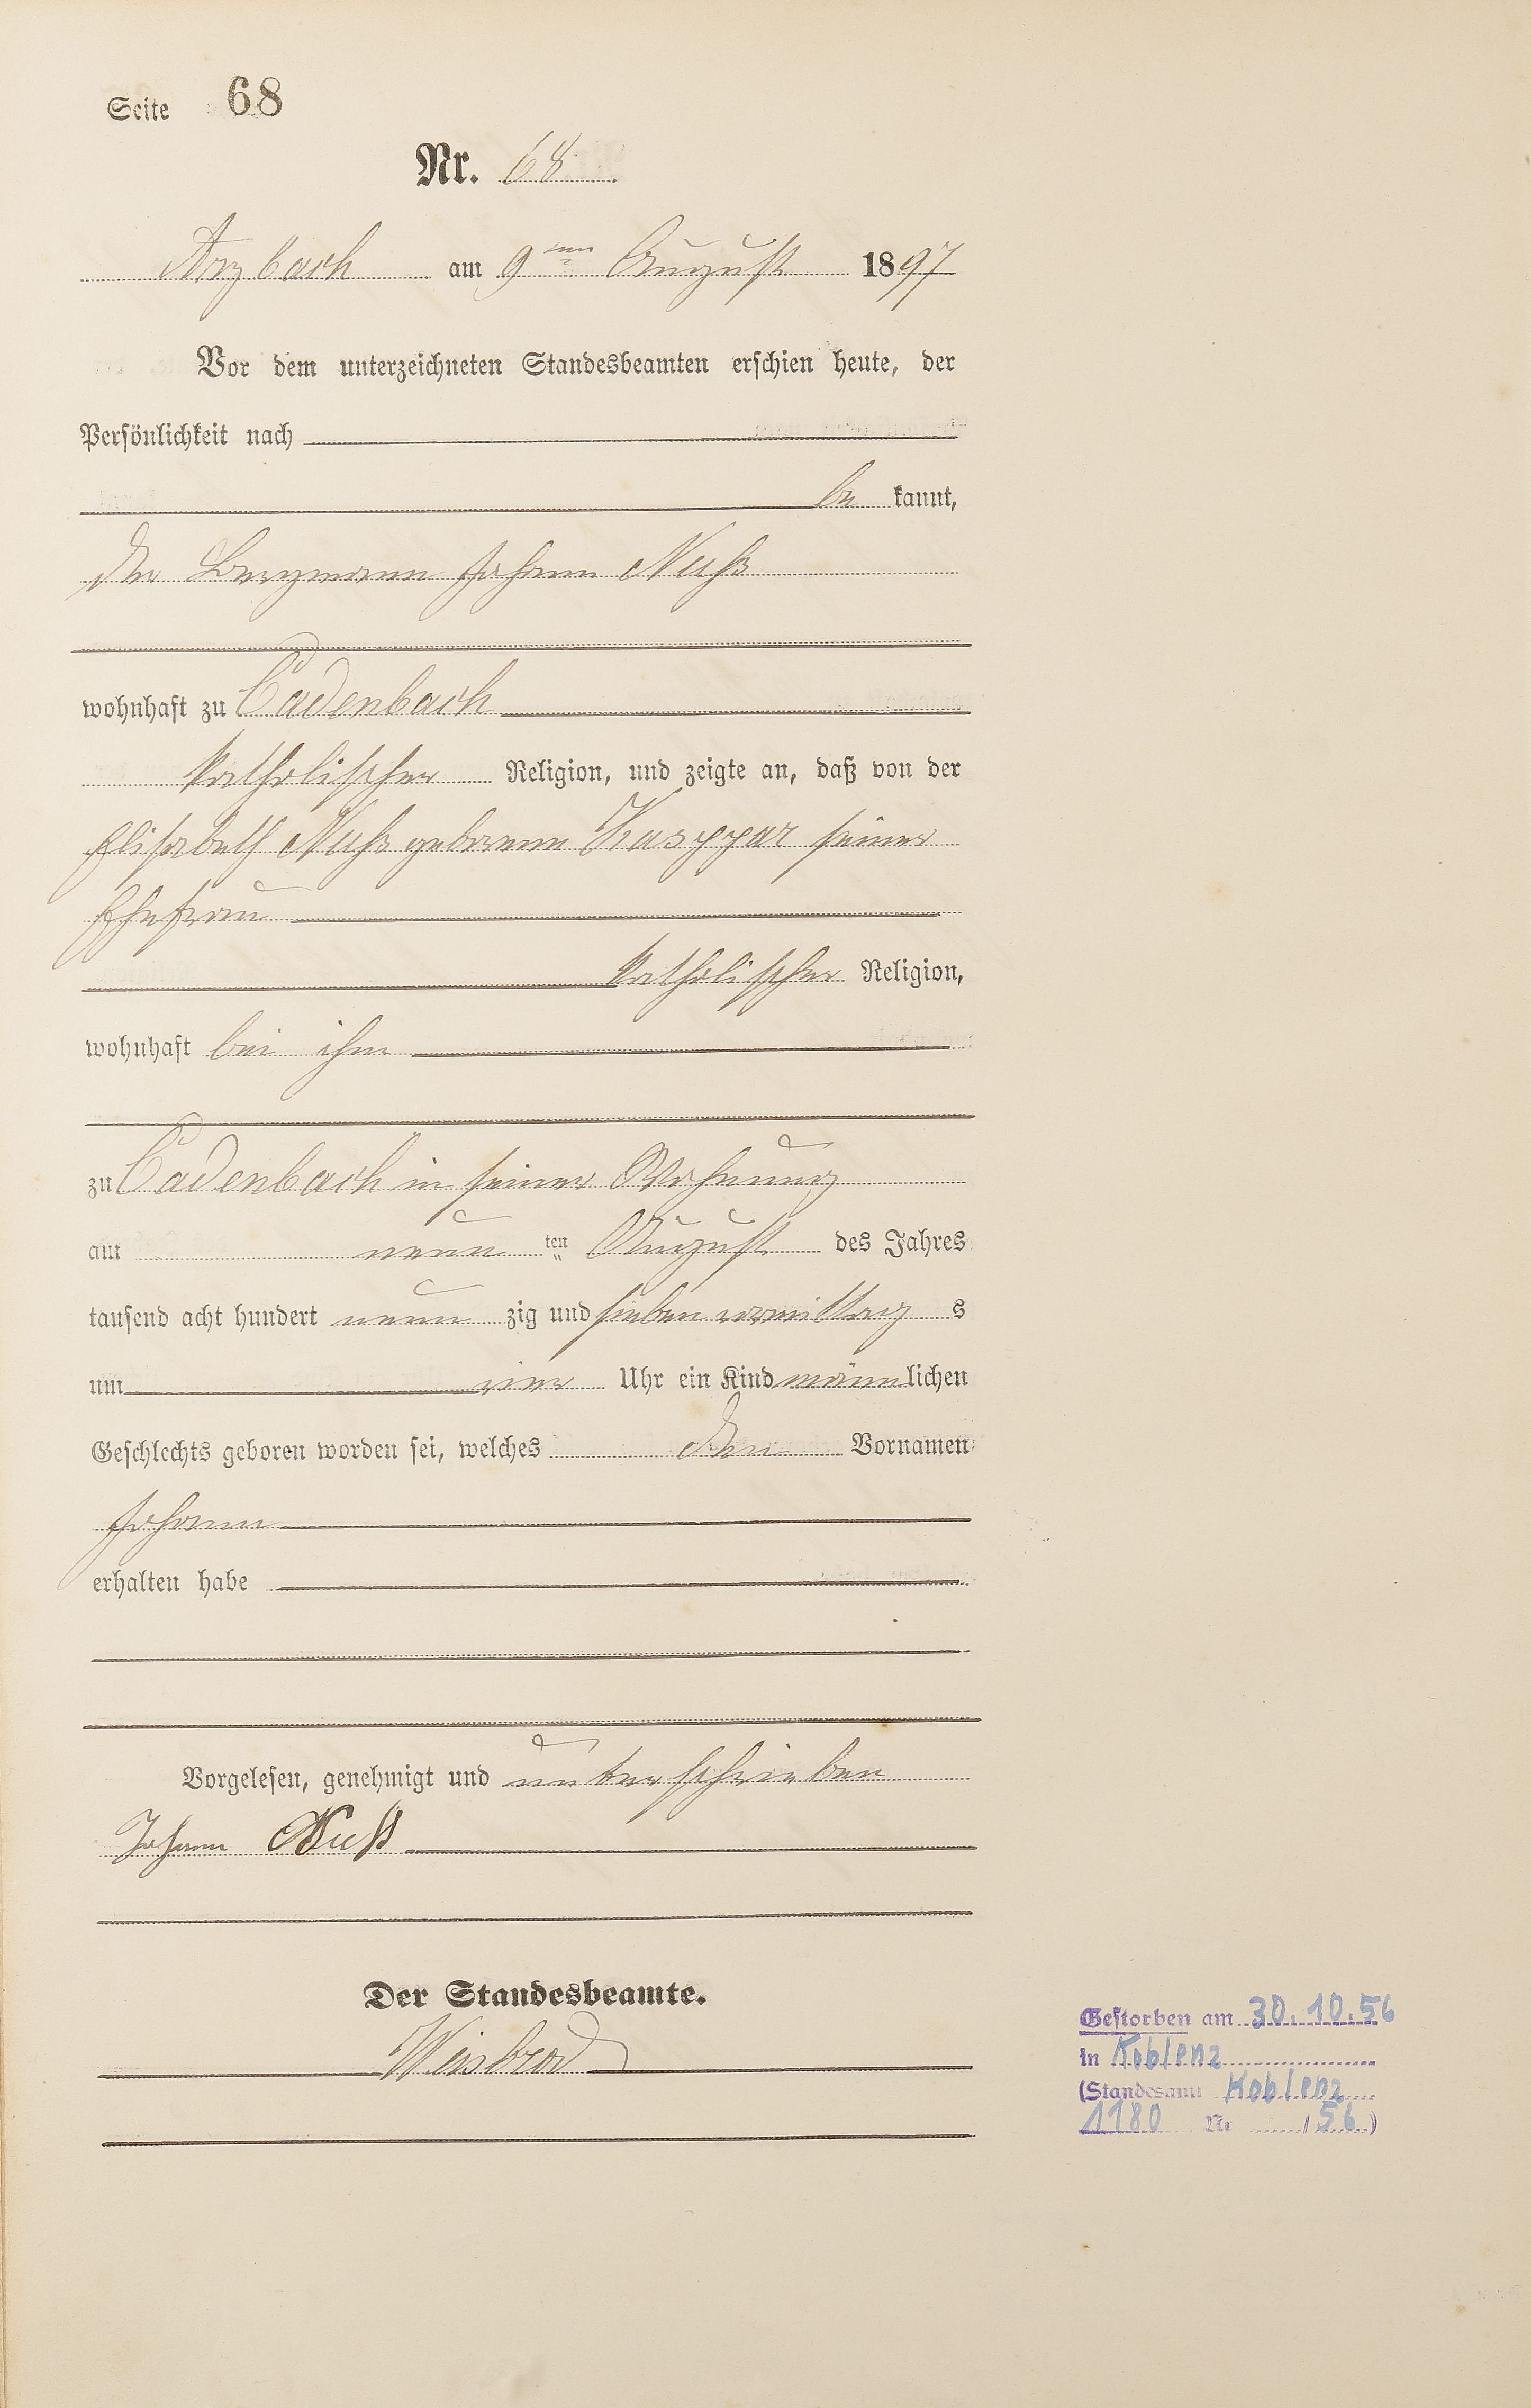 Seite 68
Nr. 68
Arzbach am 9ten August 1897
Vor dem unterzeichneten Standesbeamten erschien heute, der
Persönlichkeit nach
be kannt,
der Bergmann Johann Nuhs
wohnhaft zu Cadenbach
katholischer Religion, und zeigte an, daß von der
Elisabeth Nuhs geborene Kasppar seiner
Ehefrau
katholischer Religion,
wohnhaft bei ihm
zu Cadenbach in seiner Wohnung
am neun ten August des Jahres
tausend acht hundert neun zig und sieben vormittag s
um vier Uhr ein Kind männlichen
Geschlechts geboren worden sei, welches den Vornamen
Johann
erhalten habe
Vorgelesen, genehmigt und unterschrieben
Johann Nuß
Der Standesbeamte.
Weisbrod
Gestorben am 30.10.56
in Koblenz
(Standesamt Koblenz
1180 Nr / 56)